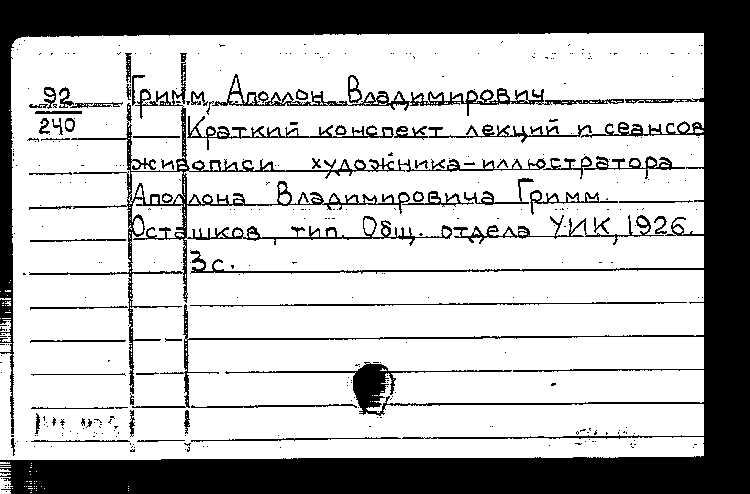 92
240
Гримм, Аполлон Владимирович
Краткий конспект лекций и сеансов
живописи художника-иллюстратора
Аполлона Владимировича Гримм.
Осташков, тип. Общ. отдела УИК, 1926.
3с.